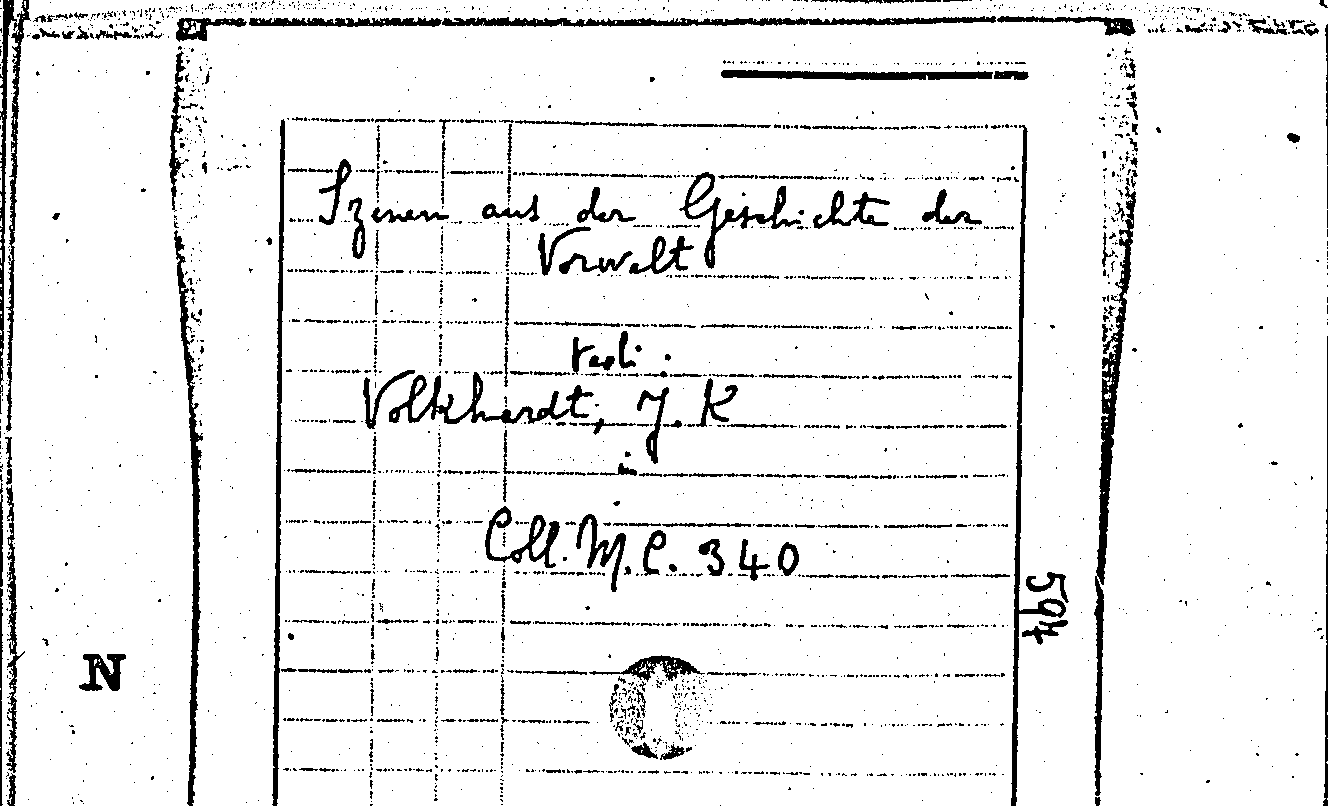 Szenen aus der Geschichte der
Vorwelt
Volkhardt, J. K
in
Coll. M.C. 340
594
N